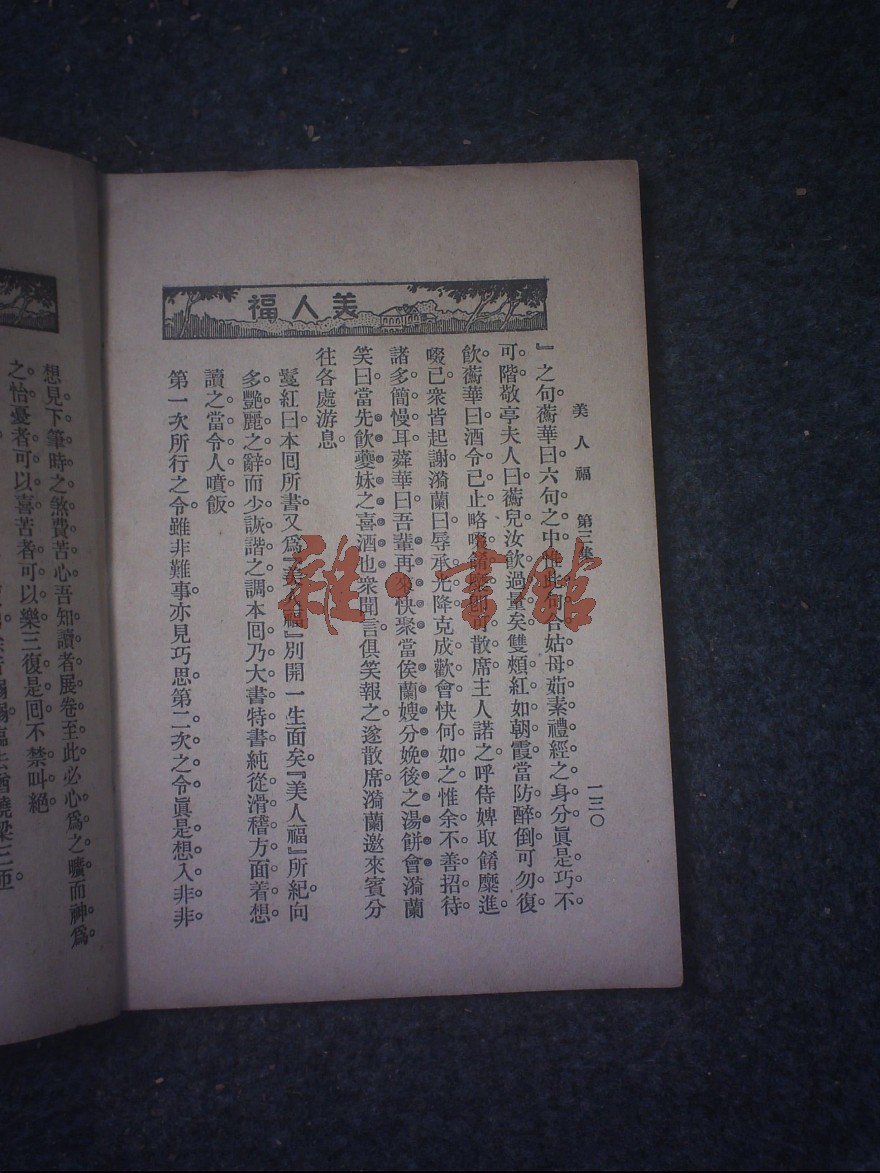 美人福
美人福　第三集
一三〇
』之句蘅華曰六句之中惟此句合姑母茹素禮經之身分眞是巧不
可階敬亭夫人曰蘅兒汝飮過量矣雙頰紅如朝霞當防醉倒可勿復
飮蘅華曰酒令已止略啜餚糜卽可散席主人諾之呼侍婢取餚糜進
啜已衆皆起謝漪蘭曰辱承光降克成歡會快何如之惟余不善招待
諸多簡慢耳蕣華曰吾輩再來快聚當俟蘭嫂分娩後之湯餠會漪蘭
笑曰當先飮夔妹之喜酒也衆聞言俱笑報之遂散席漪蘭邀來賓分
往各處游息
鬘紅曰本回所書又爲『美人福』別開一生面矣『美人福』所紀向
多艷麗之辭而少詼諧之調本回乃大書特書純從滑稽方面着想
讀之當令人噴飯
第一次所行之令雖非難事亦見巧思第二次之令眞是想入非非
想見下筆時之煞費苦心吾知讀者展卷至此必心爲之曠而神爲
之怡憂者可以喜苦者可以樂三復是回不禁叫絕
繞梁三匝
雜·書館